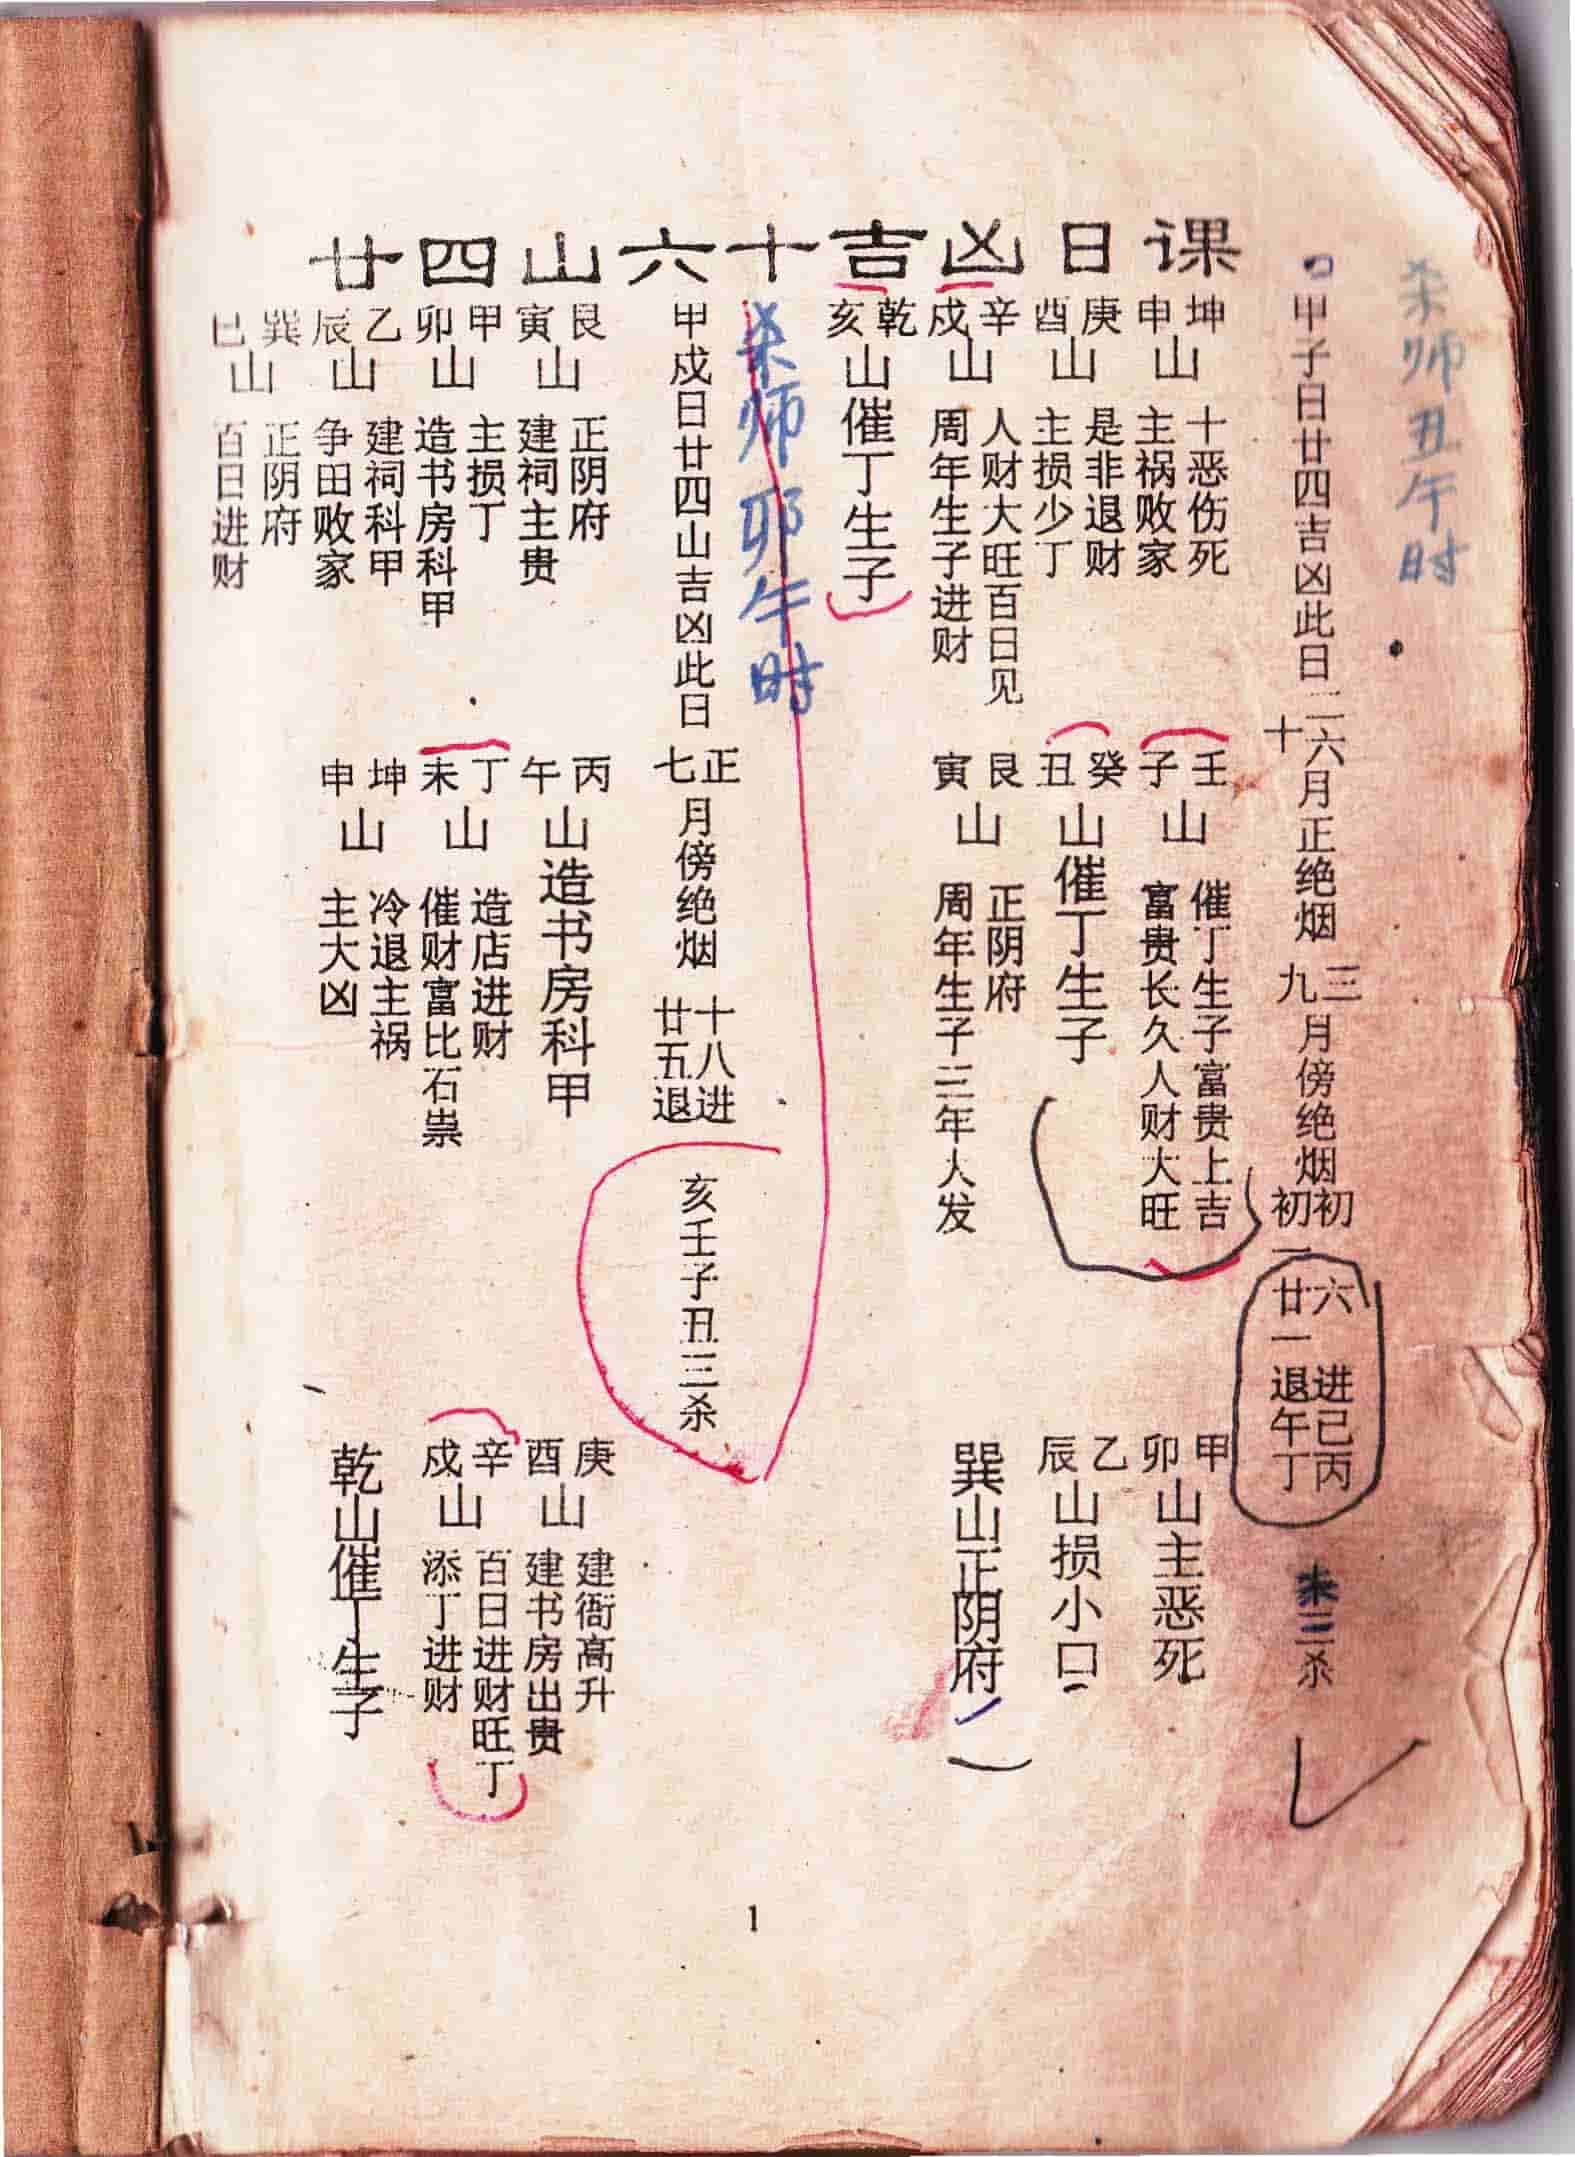 廿四山六十吉凶日课
杀师丑午时
甲子日廿四吉凶此日二六十月正绝烟三九月傍绝烟初六进初一廿一退已丙午丁未三杀
坤申山十恶伤死主祸败家
壬子山催丁生子富贵上吉富贵长久人财大旺
甲卯山主恶死
庚酉山是非退财主损少丁
癸丑山催丁生子
乙辰山损小口
辛戍山人财大旺百日见周年生子进财
艮寅山正阴府周年生子三年人发
巽山正阴府
乾亥山催丁生子
杀师卯午时
甲戍日廿四山吉凶此日正七月傍绝烟十八进廿五退亥壬子丑三杀
艮寅山正阴府建祠主贵
丙午山造书房科甲
庚酉山建衙高升建书房出贵
甲卯山主损丁造书房科甲
丁未山造店进财催财富比石祟
辛戍山百日进财旺丁添丁进财
乙辰山建祠科甲争田败家
坤申山冷退主祸主大凶
乾山催丁生子
巽巳山正阴府百日进财
1